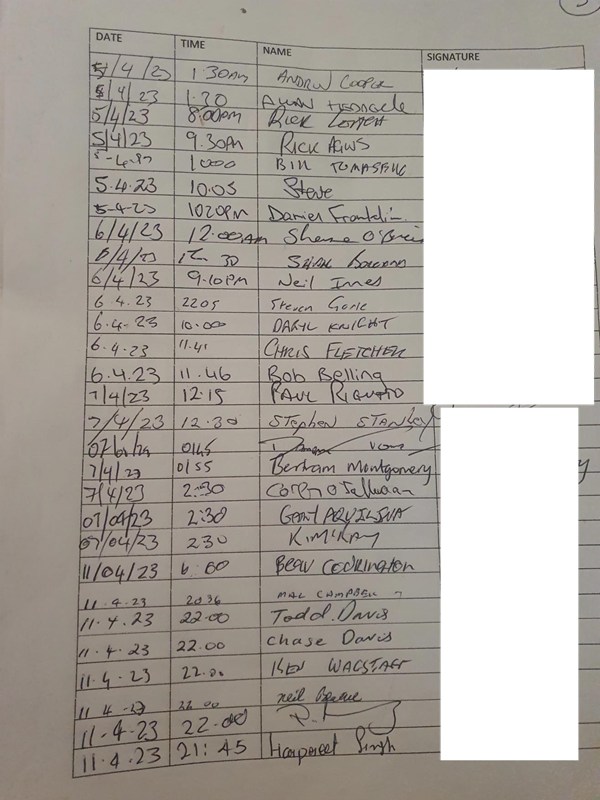 3
DATE TIME NAME SIGNATURE
5/4/23 1:30AM ANDREW COOPER
5/4/23 1.30
5/4/23 8:00pm RICK
5/4/23 9.30PM RICK
1000 BILL
5.4.23 10.05 Steve
5-4-23 1020PM Daniel Franklin
6/4/23 12.00AM O'Brien
6/4/23 12 30
6/4/23 9.10PM Neil Innes
6 4.23 2205 Steven
6.4-23 10.00 DARYL KNIGHT
6.4.23 11.41 CHRIS FLETCHER
6.4.23 11.46 Bob Belling
7/4/23 12.15 PAUL
7/4/23 12.30 STEPHEN STANLEY
0145
7/4/23 0155 Bertram Montgomery
7/4/23 2:30
07/04/23 2:30
07/04/23 230 KIM KAY
11/04/23 6:00 BEAU CODRINGTON
11.4.23 2036 MAL CAMPBELL
11.4.23 22.00 Todd. Davis
11.4.23 22.00 Chase Davis
11.4.23 22.00 KEN WAGSTAFF
11 4 -23 22 00 Neil
11.4.23 22.00
11.4.23 21:45 Harpreet Singh